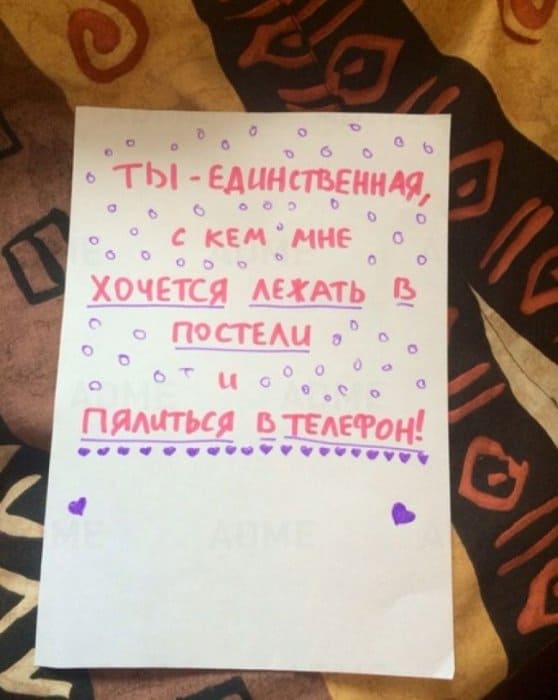 ТЫ - ЕДИНСТВЕННАЯ,
С КЕМ МНЕ
ХОЧЕТСЯ ЛЕЖАТЬ В
ПОСТЕЛИ
И
ПЯЛИТЬСЯ В ТЕЛЕФОН!
ADME